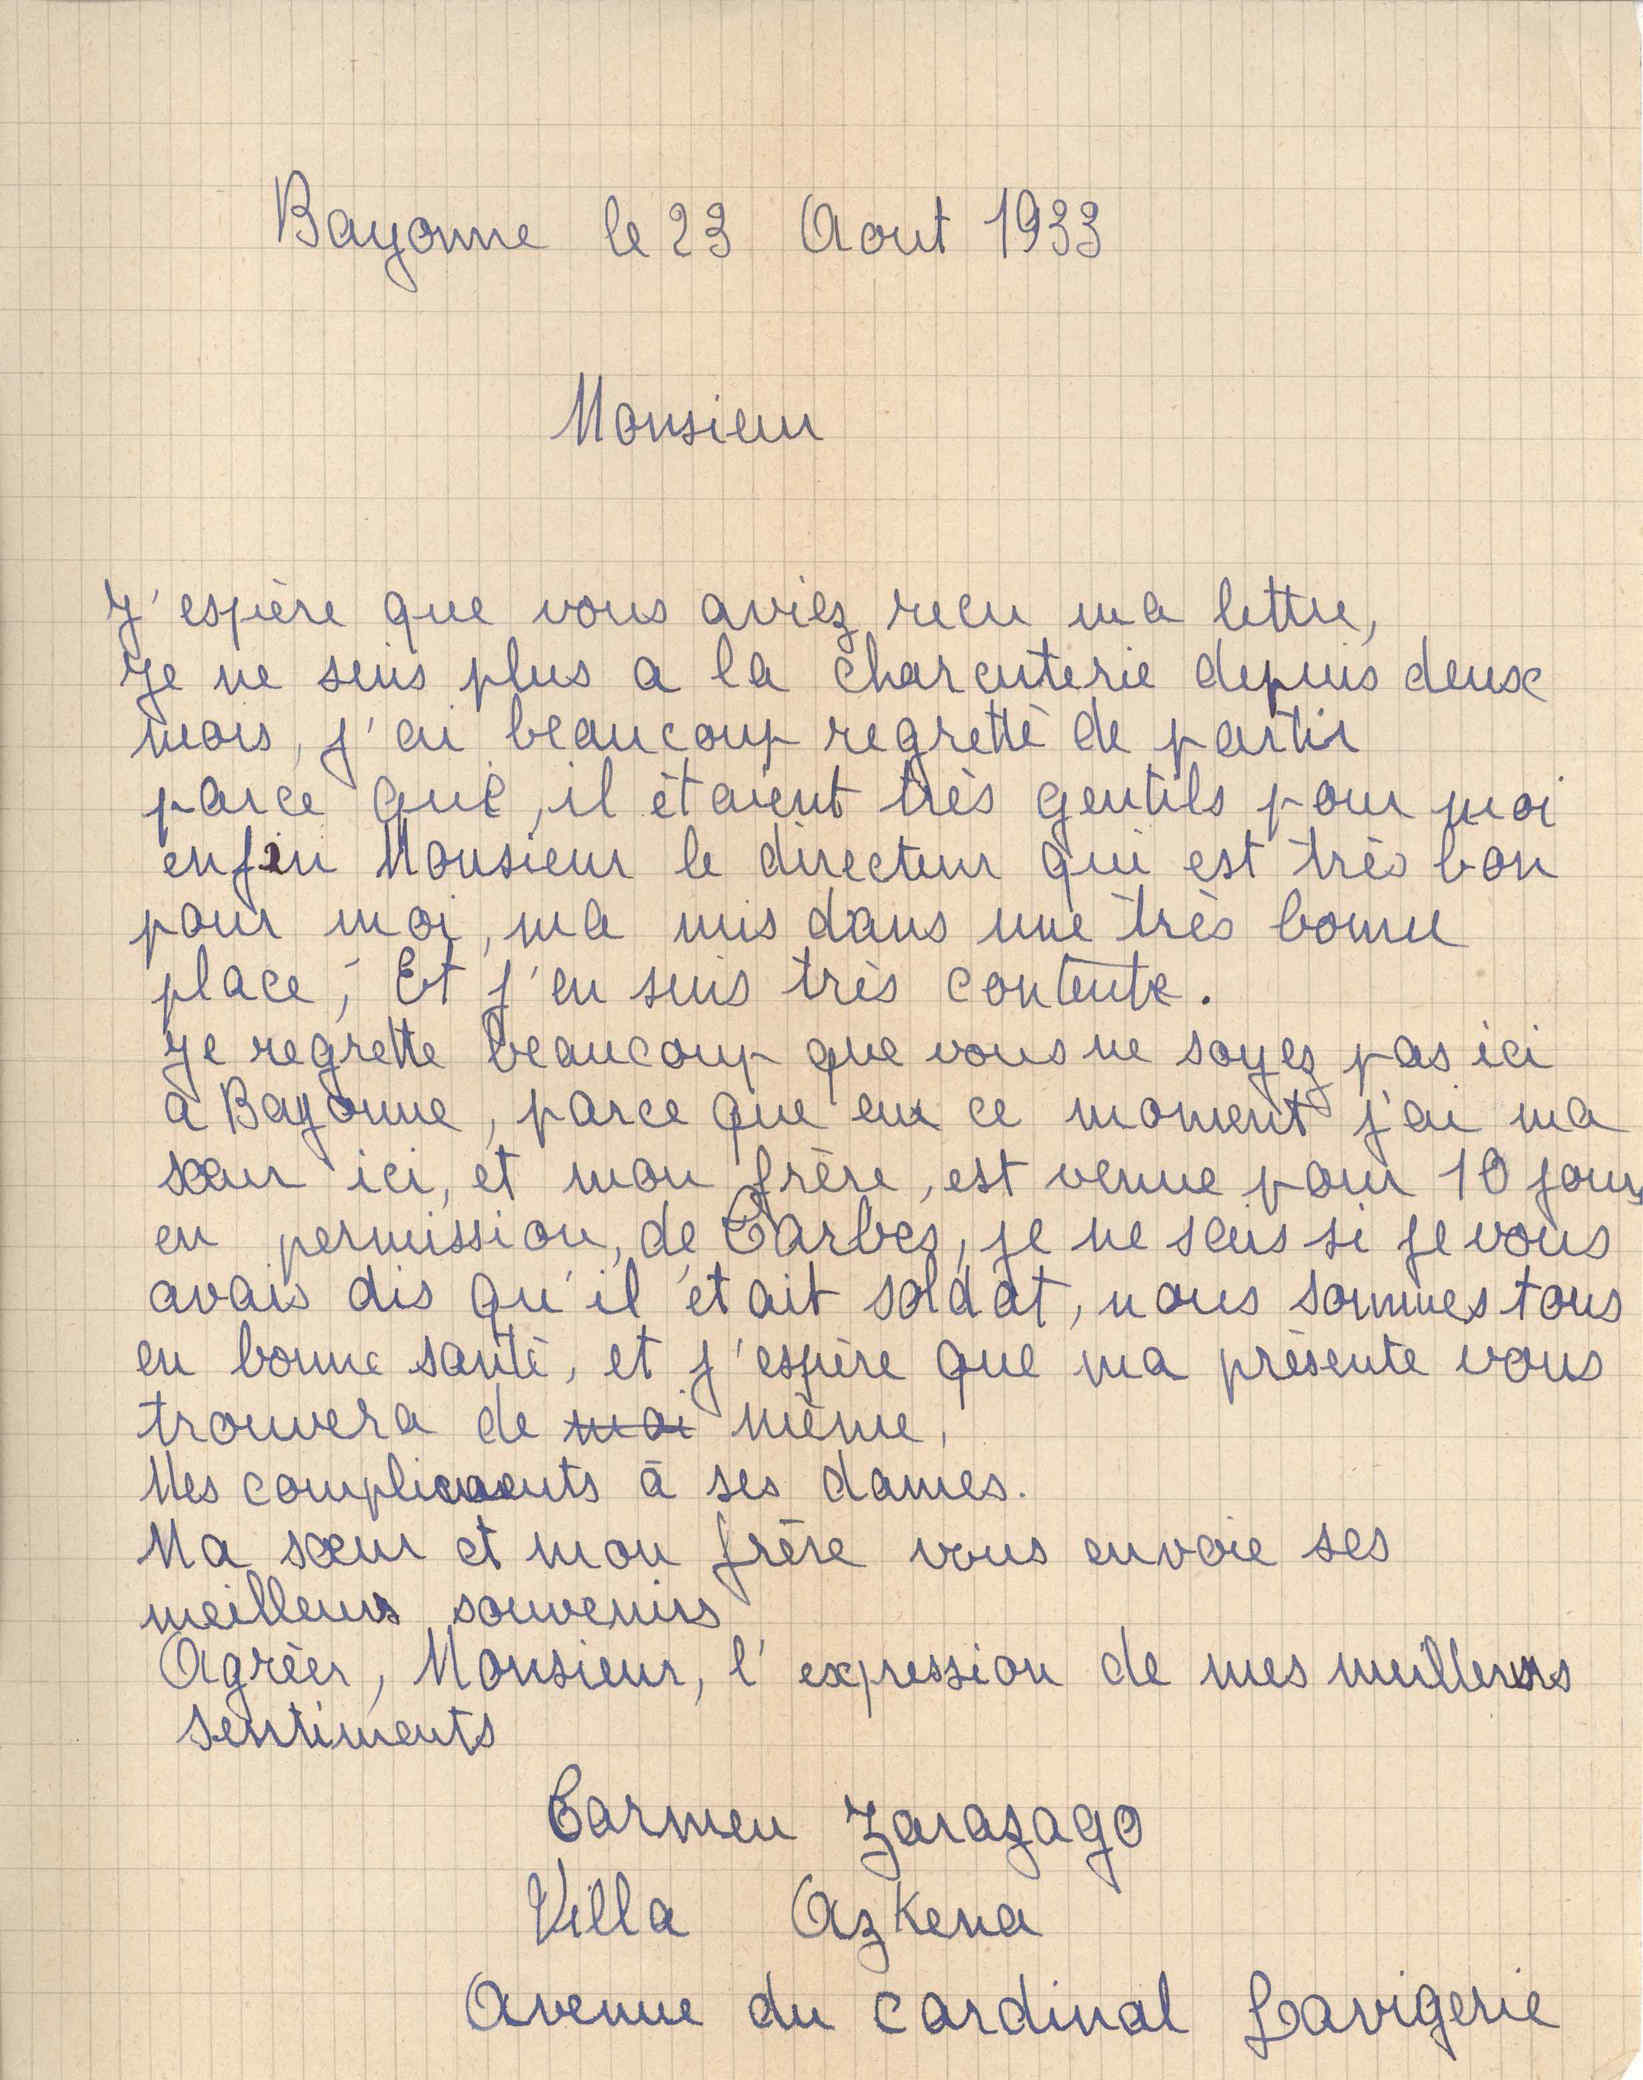 Bayonne le 23 Aout 1933
Monsieur
J'espère que vous aviez recu ma lettre,
Je ne suis plus a la charcuterie depuis deux
mois, j'ai beaucoup regretté de partir
parce que, il étaient très gentils pour moi
enfin Monsieur le directeur qui est très bon
pour moi, ma mis dans une très bonne
place, Et j'en suis très contente.
Je regrette beaucoup que vous ne soyez pas ici
a Bayonne, parce que en ce moment j'ai ma
sœur ici, et mon frère, est venue pour 10 jours
en permission, de Tarbes, je ne sais si je vous
avais dis qu'il était soldat, nous sommes tous
en bonne santé, et j'espère que ma présente vous
trouvera de moi même,
Mes compliments à ses dames.
Ma sœur et mon frère vous envoie ses
meilleurs souvenirs
Agréer, Monsieur, l'expression de mes meilleurs
sentiments
Carmen Zarazago
Villa Azkena
Avenue du Cardinal Lavigerie